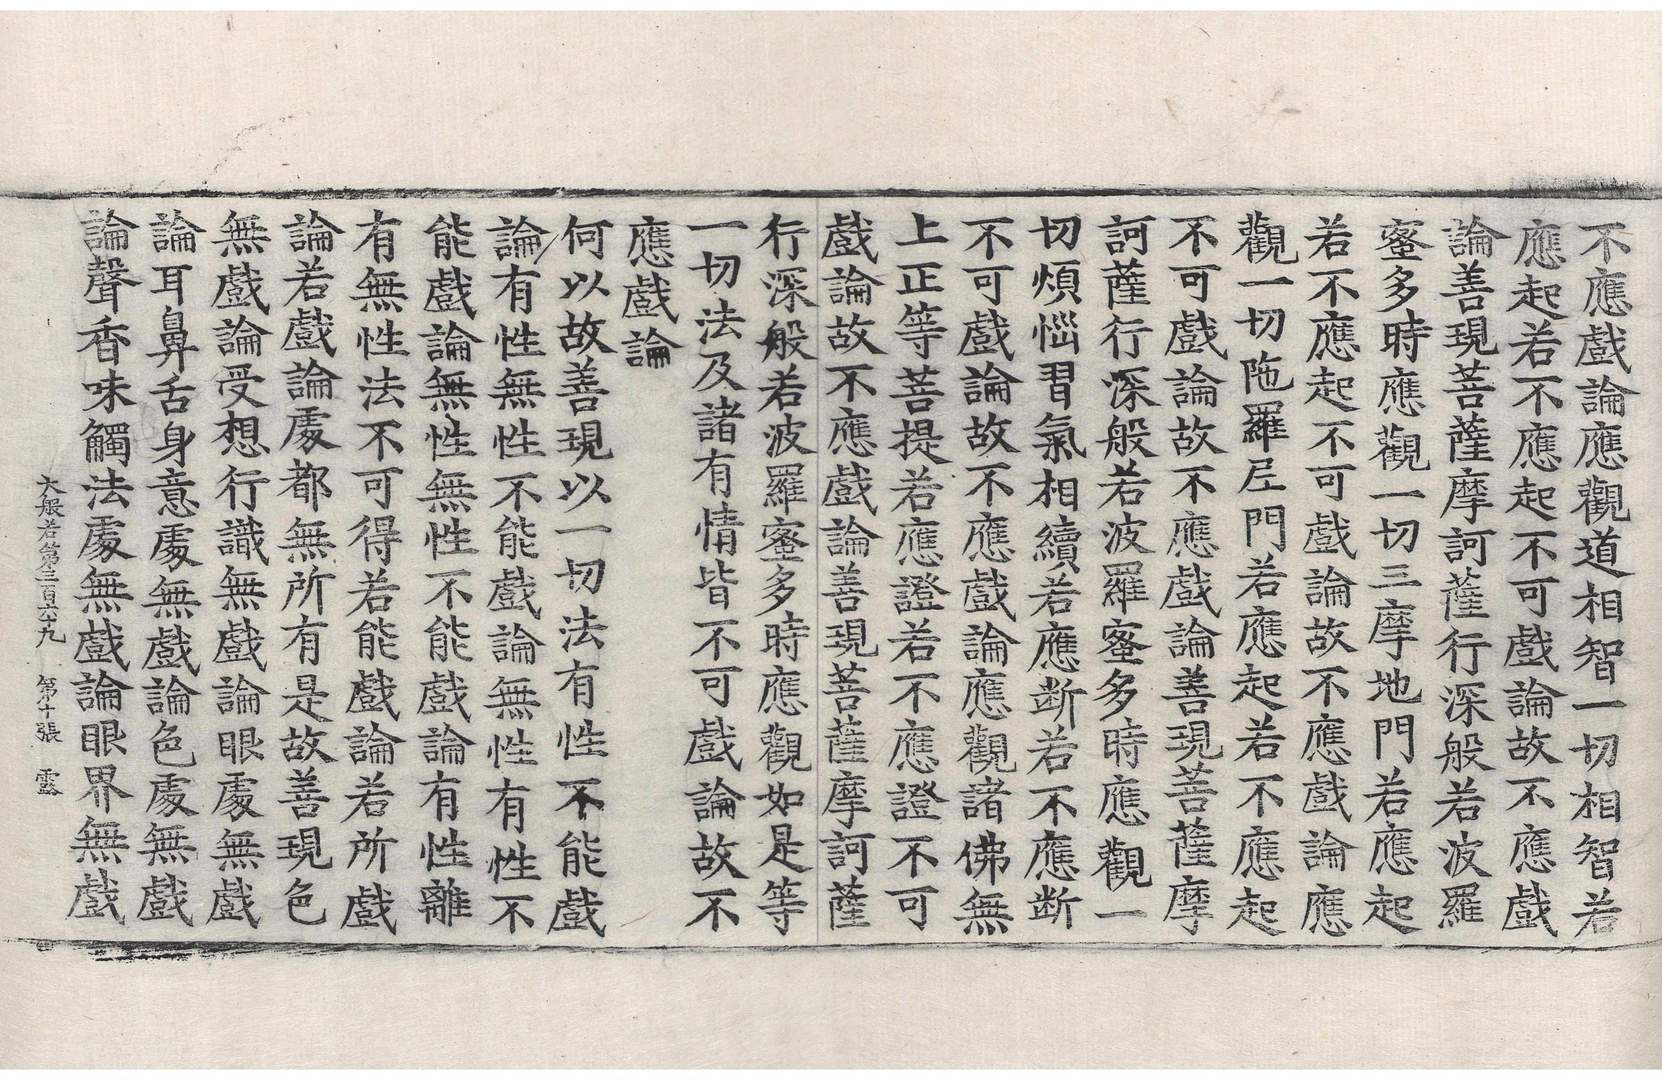 不應戲論應觀道相智一切相智若
應起若不應起不可戲論故不應戲
論善現菩薩摩訶薩行深般若波羅
蜜多時應觀一切三摩地門若應起
若不應起不可戲論故不應戲論應
觀一切陁羅尼門若應起若不應起
不可戲論故不應戲論善現菩薩摩
訶薩行深般若波羅蜜多時應觀一
切煩惱習氣相續若應断若不應断
不可戲論故不應戲論應觀諸佛無
上正等菩提若應證若不應證不可
戲論故不應戲論善現菩薩摩訶薩
行深般若波羅蜜多時應觀如是等
一切法及諸有情皆不可戲論故不
應戲論
何以故善現以一切法有性不能戲
論有性無性不能戲論無性有性不
能戲論無性無性不能戲論有性離
有無性法不可得若能戲論若所戲
論若戲論處都無所有是故善現色
無戲論受想行識無戲論眼處無戲
論耳鼻舌身意處無戲論色處無戲
論聲香味觸法處無戲論眼界無戲
大般若第三百六十九 第十張